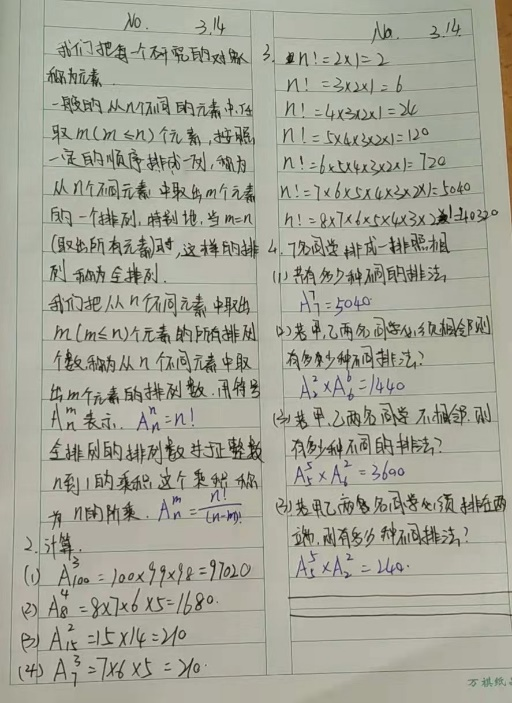 No. 3.14
我们把每一个研究的对象
称为元素.
一般的从n个不同的元素中,任
取m(m≤n)个元素,按照
一定的顺序排成一列,称为
从n个不同元素中取出m个元素
的一个排列.特别地,当m=n
(取出所有元素)时,这样的排
列称为全排列.
我们把从n个不同元素中取出
m(m≤n)个元素的所有排列
个数,称为从n个不同元素中取
出m个元素的排列数.用符号
Aₙᵐ表示. Aₙⁿ=n!
全排列的排列数等于正整数
n到1的乘积.这个乘积称
为n的阶乘. Aₙᵐ=n!/(n-m)!
2.计算.
(1) A₁₀₀³=100×99×98=97020
(2) A₈⁴=8×7×6×5=1680.
(3) A₁₅²=15×14=210
(4) A₇³=7×6×5=210.
No. 3.14
3. n!=2×1=2
n!=3×2×1=6
n!=4×3×2×1=24
n!=5×4×3×2×1=120
n!=6×5×4×3×2×1=720
n!=7×6×5×4×3×2×1=5040
n!=8×7×6×5×4×3×2×1=40320
4. 7名同学排成一排照相
(1)共有多少种不同的排法
A₇⁷=5040
(2)若甲、乙两名同学必须相邻则
有多少种不同排法?
A₂²×A₆⁶=1440
(3)若甲、乙两名同学不相邻,则
有多少种不同的排法?
A₅⁵×A₆²=3600
(3)若甲乙两名同学必须排在两
端,则有多少种不同排法?
A₅⁵×A₂²=240.
万棋纸品